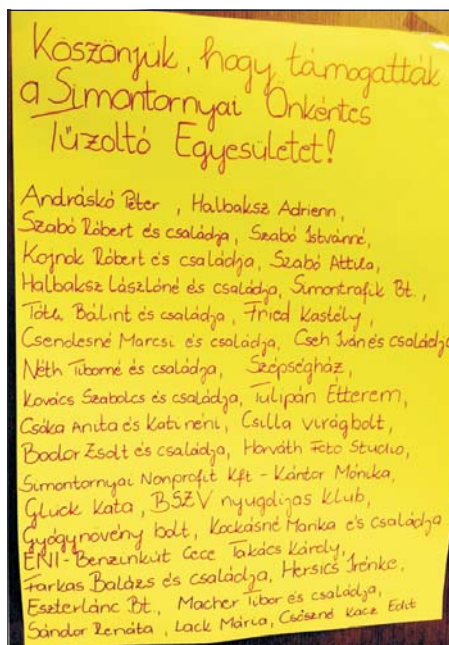 Köszönjük, hogy támogatták
a Simontornyai Önkéntes
Tűzoltó Egyesületet!
Andráskó Péter, Halbaksz Adrienn,
Szabó Róbert és családja, Szabó Istvánné,
Kojnok Róbert és családja, Szabó Attila,
Halbaksz Lászlóné és családja, Simontrafik Bt.,
Tóth Bálint és családja, Fried Kastély,
Csendesné Marcsi és családja, Cseh Iván és családja
Néth Tiborné és családja, Szépségház,
Kovács Szabolcs és családja, Tulipán Étterem,
Csóka Anita és Kati néni, Csilla virágbolt,
Bodor Zsolt és családja, Horváth Foto Studio,
Simontornyai Nonprofit Kft - Kántor Mónika,
Gluck Kata, BSZV nyugdíjas klub,
Gyógynövény bolt, Kockásné Marika és családja
ENI-Benzinkút Cece Takács Károly,
Farkas Balázs és családja, Hersics Irénke,
Eszterlánc Bt., Macher Tibor és családja,
Sándor Renáta, Lack Mária, Csőszné Kacz Edit